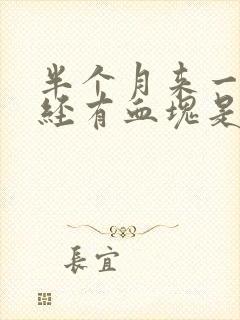 半个月来一
经有血塊是
長宜